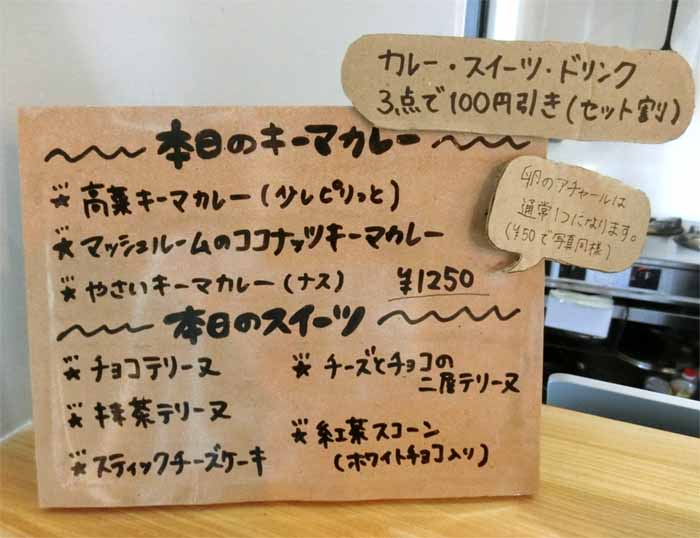 カレー・スイーツ・ドリンク
3点で100円引き(セット割)
本日のキーマカレー
高菜キーマカレー(少しピリっと)
マッシュルームのココナッツキーマカレー
やさいキーマカレー(ナス) ¥1250
卵のアチャールは
通常1つになります。
(¥50で写真同様)
本日のスイーツ
チョコテリーヌ
抹茶テリーヌ
スティックチーズケーキ
チーズとチョコの
二層テリーヌ
紅茶スコーン
(ホワイトチョコ入り)